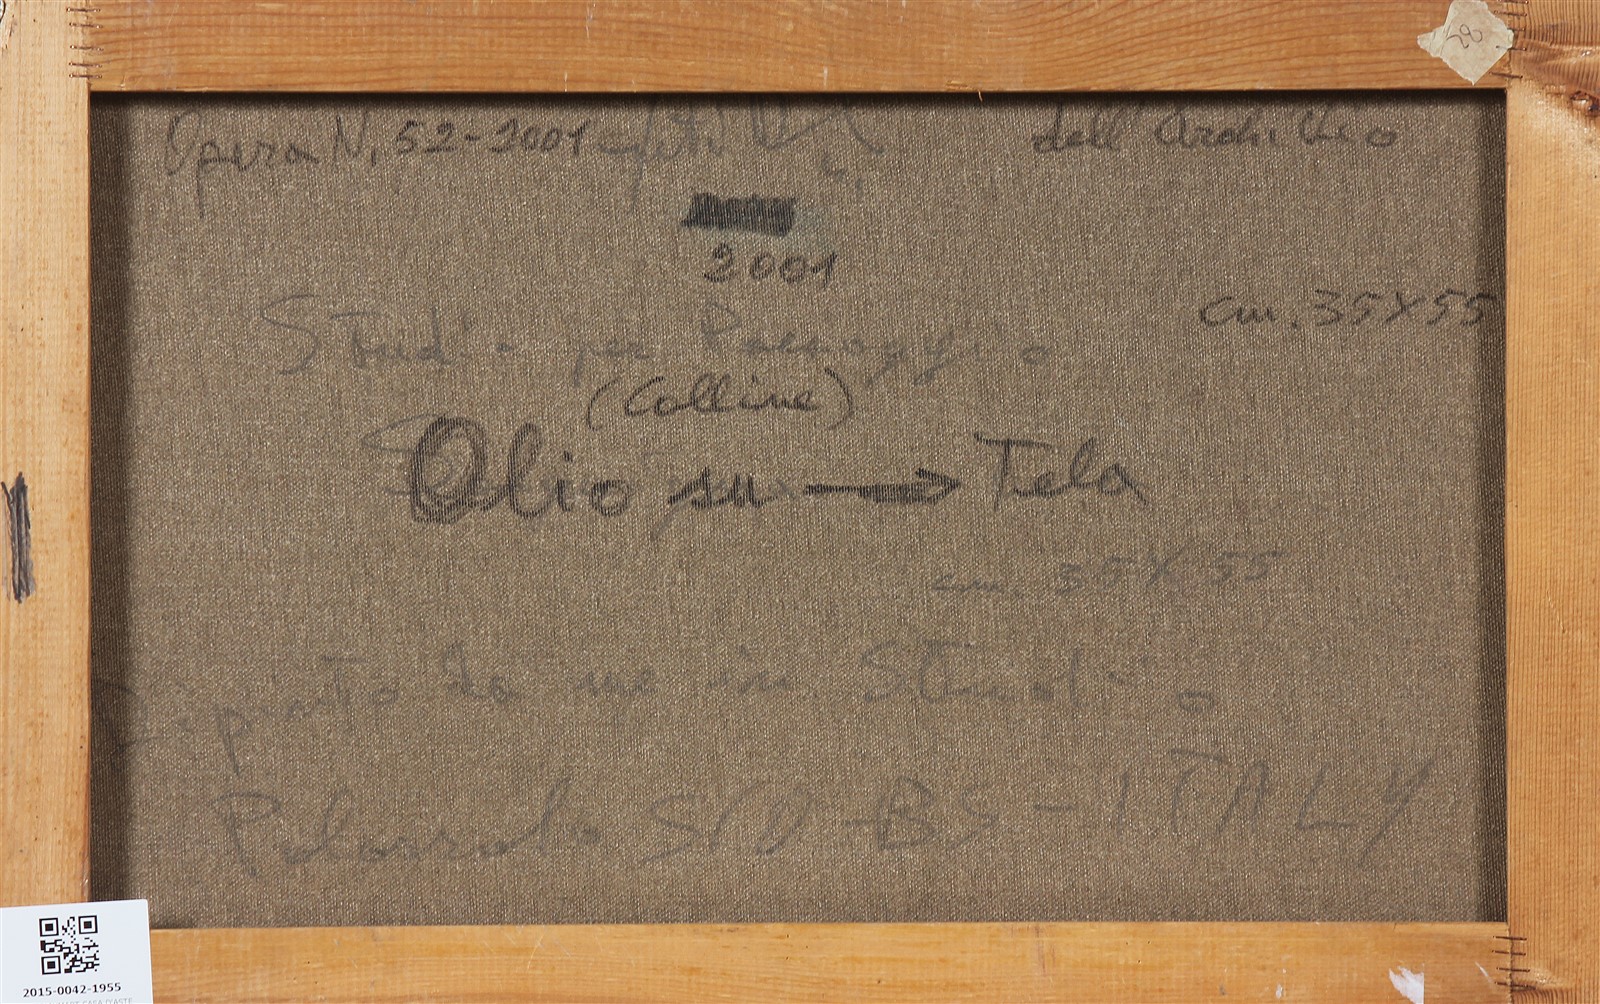 28
Opera N. 52-2001 dell'Archivio
2001
cm. 35x55
Studio per Paesaggio
(Colline)
Olio su → Tela
cm. 35x55
Dipinto da me in Studio
BS - ITALY
2015-0042-1955